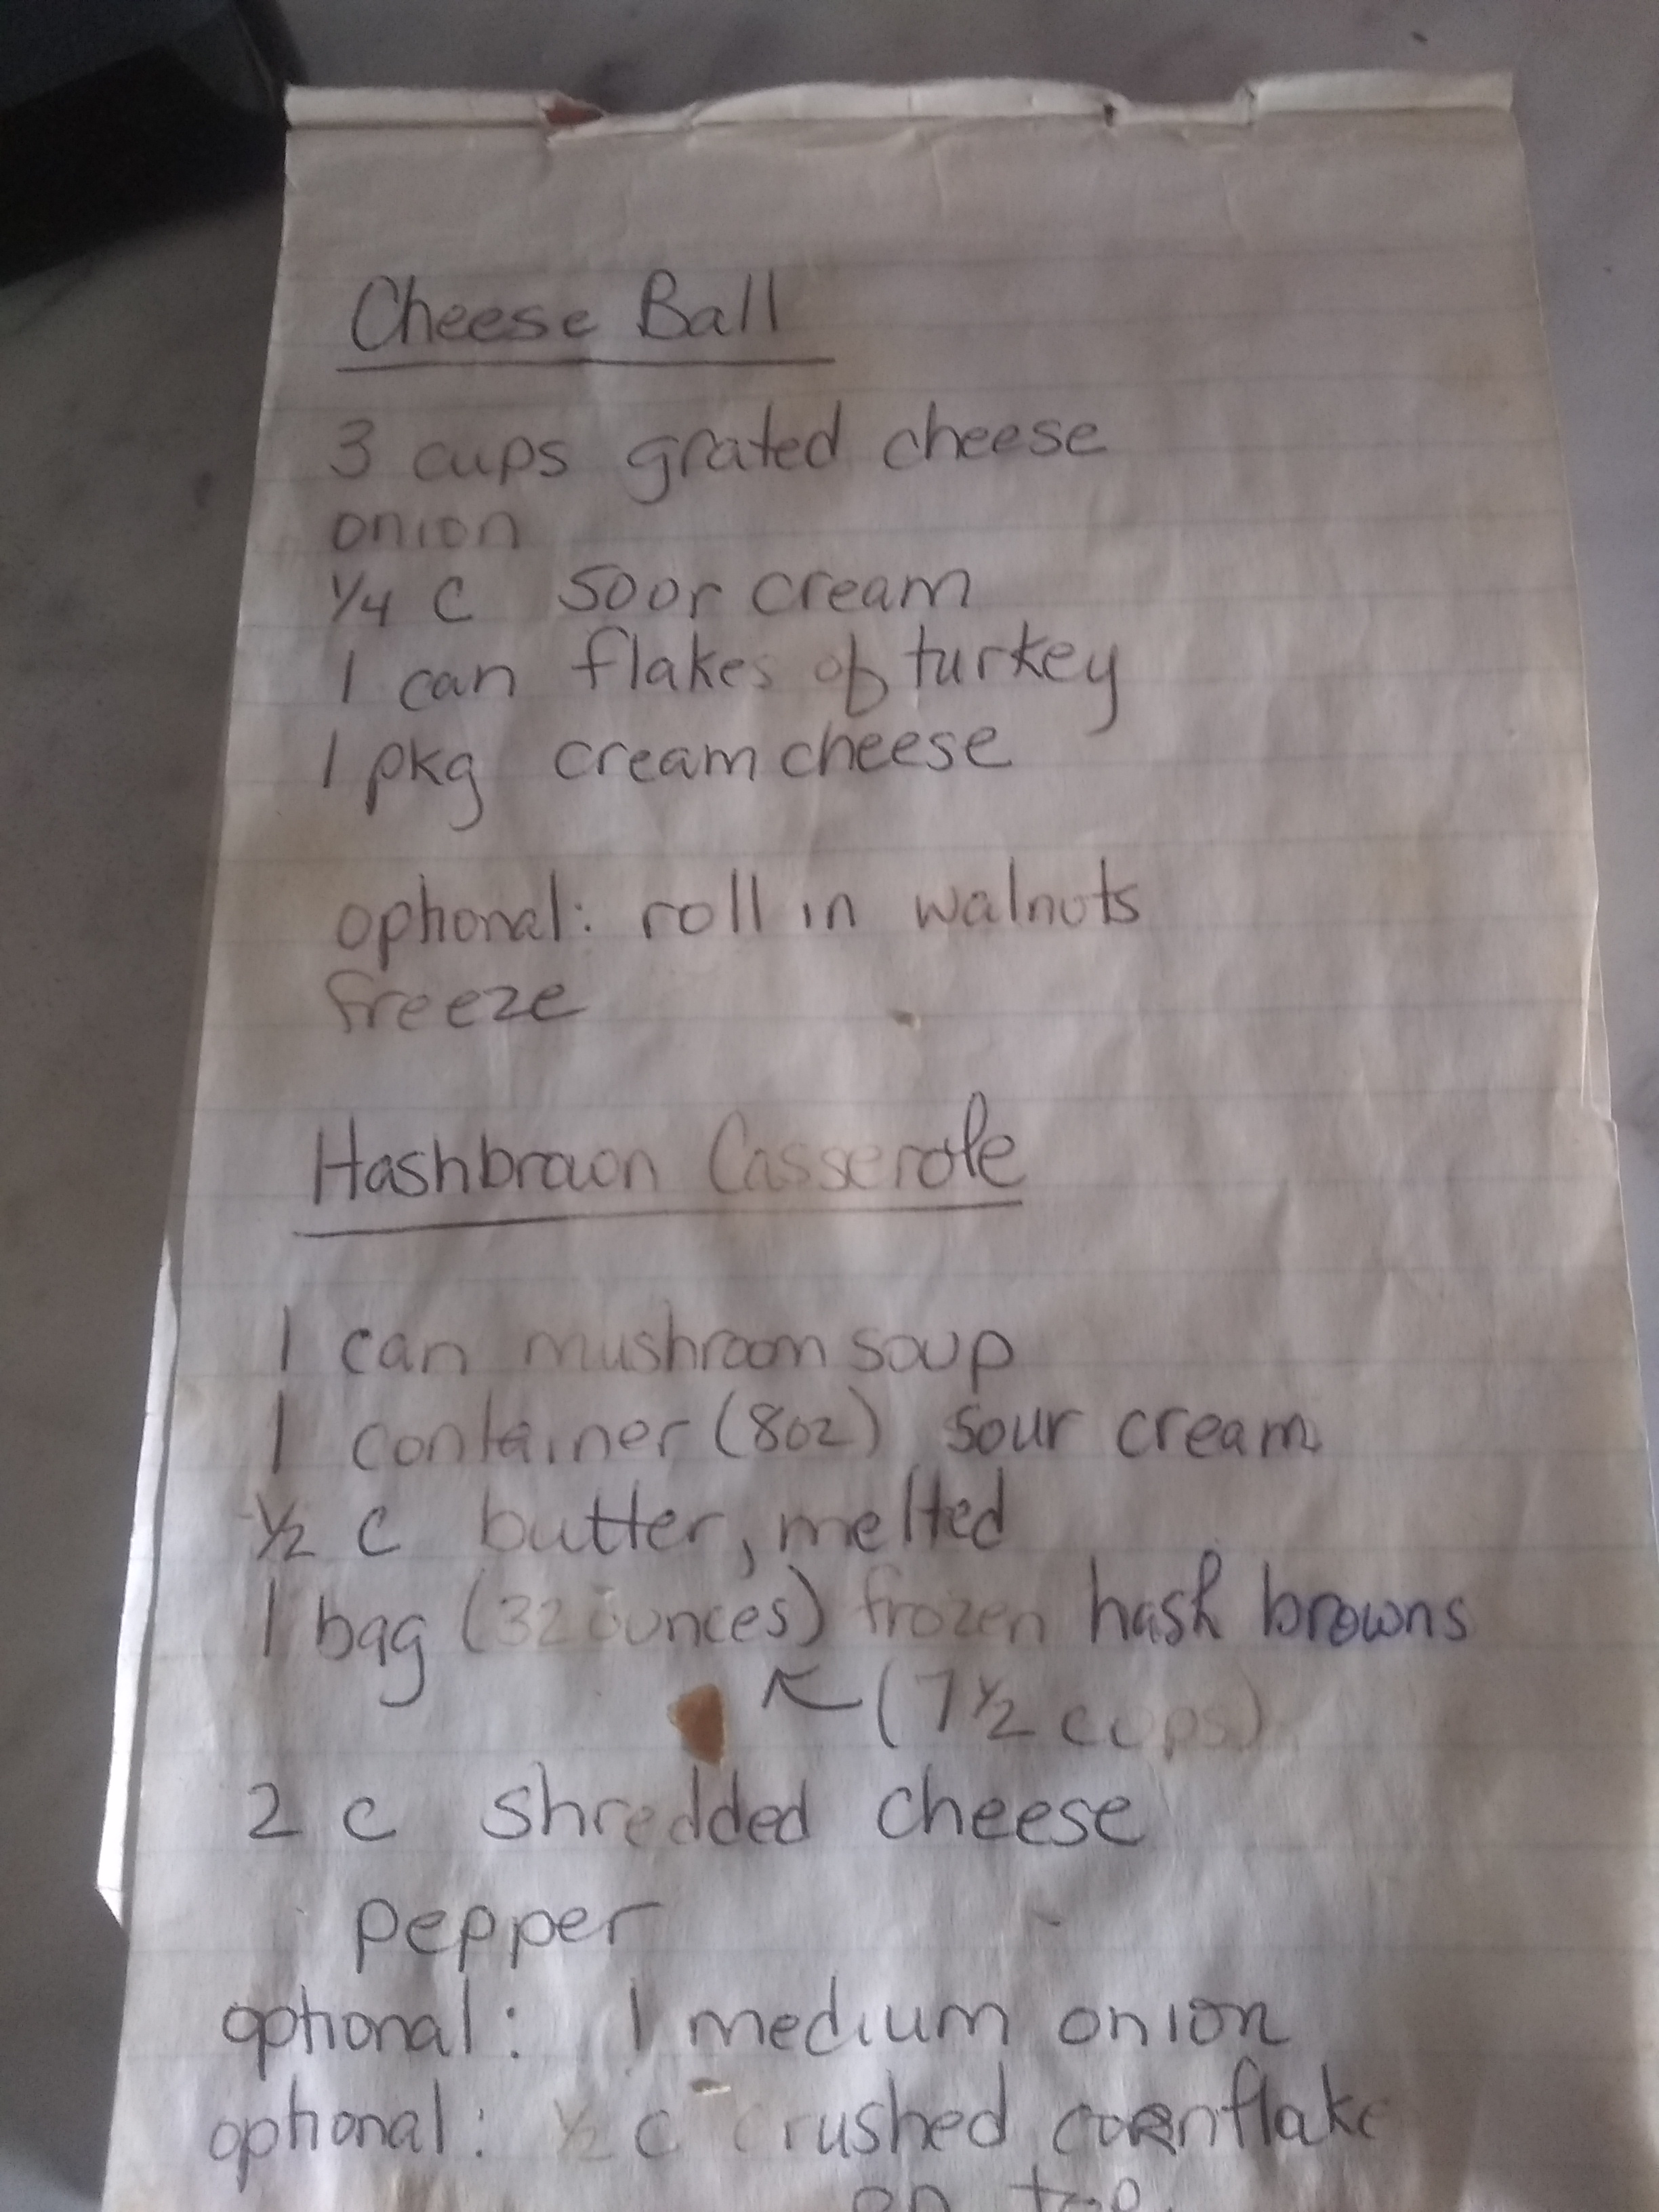 Cheese Ball
3 cups grated cheese
onion
1/4 C sour cream
1 can flakes of turkey
1 pkg cream cheese
optional: roll in walnuts
freeze
Hashbrown Casserole
1 can mushroom soup
1 container (8oz) sour cream
1/2 C butter, melted
1 bag (32 ounces) frozen hash browns
(7 1/2 cups)
2 c shredded cheese
pepper
optional: 1 medium onion
optional: 1/2 c crushed cornflake
on top